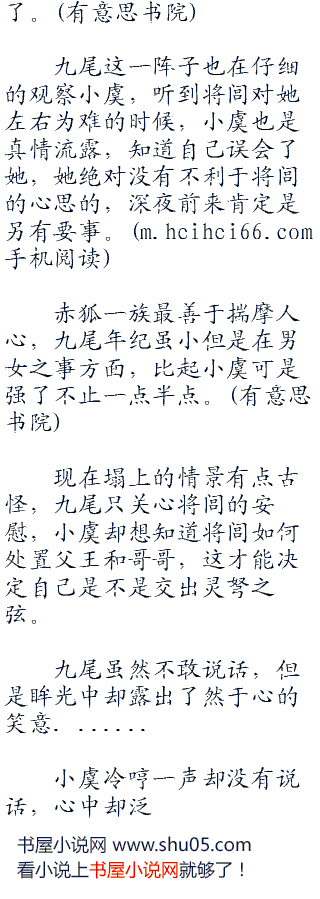 了。(有意思书院)
九尾这一阵子也在仔细
的观察小虞，听到将闾对她
左右为难的时候，小虞也是
真情流露，知道自己误会了
她，她绝对没有不利于将闾
的心思的，深夜前来肯定是
另有要事。(m.hcihci66.com
手机阅读)
赤狐一族最善于揣摩人
心，九尾年纪虽小但是在男
女之事方面，比起小虞可是
强了不止一点半点。(有意思
书院)
现在塌上的情景有点古
怪，九尾只关心将闾的安
慰，小虞却想知道将闾如何
处置父王和哥哥，这才能决
定自己是不是交出灵弩之
弦。
九尾虽然不敢说话，但
是眸光中却露出了然于心的
笑意.......
小虞冷哼一声却没有说
话，心中却泛
书屋小说网 www.shu05.com
看小说上书屋小说网就够了！